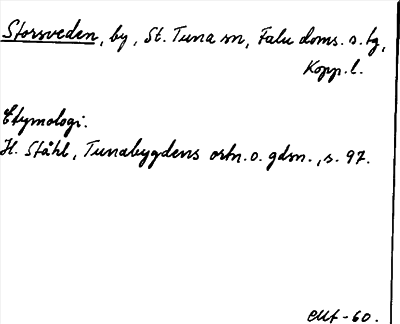 Storsveden, by, St. Tuna sn, Falu doms. s. tg,
Kopp. l.
Etymologi.
H. Ståhl, Tunabygdens ortn. o. gdsn., s. 97.
-60.